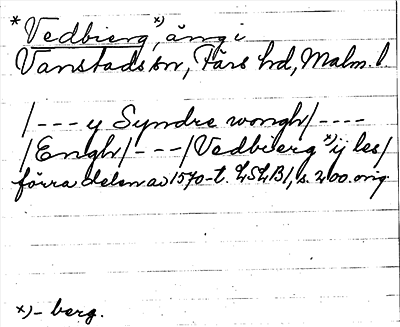 * Vedbierg x), äng i
Vanstads sn, Färs hd, Malm. l.
/--- y Syndre wongh/----
/Engh/---/Vedbierg x) ij les/
förra delen av 1570-t. LSLB1, s. 200. orig
x) - berg.